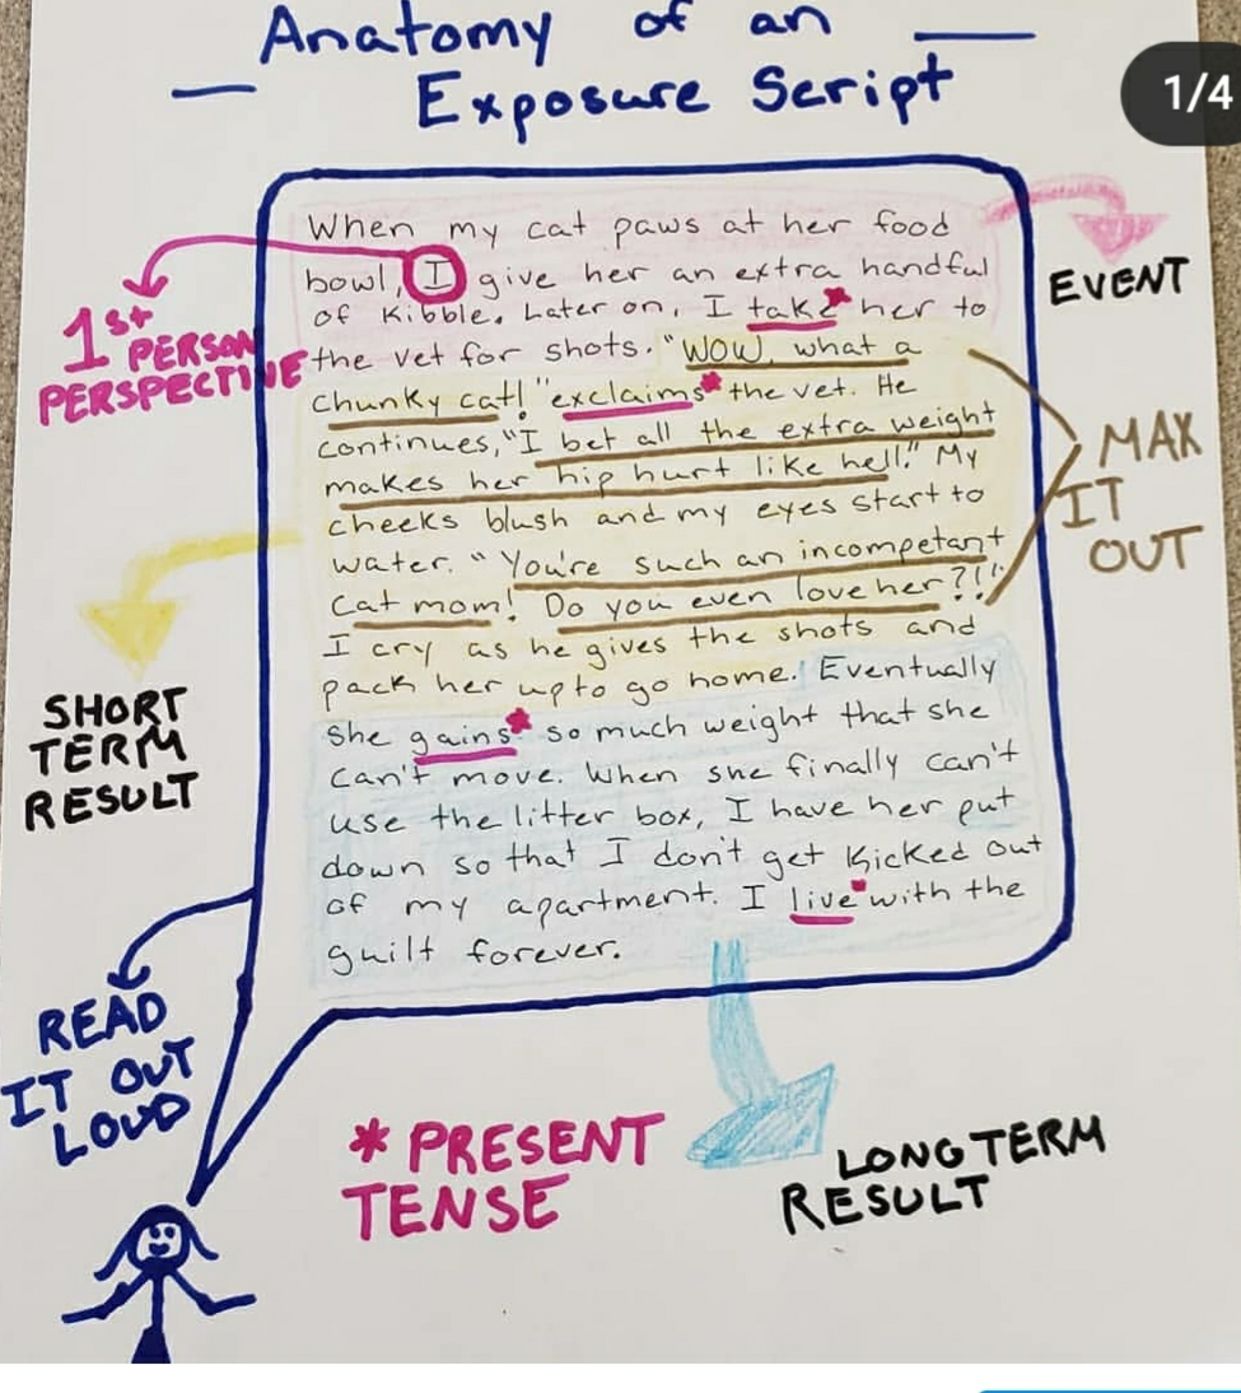 Anatomy of an
Exposure Script
1/4
When my cat paws at her food
bowl, I give her an extra handful
of kibble. Later on, I take* her to
the vet for shots. "WOW, what a
chunky cat!" exclaims* the vet. He
continues, "I bet all the extra weight
makes her hip hurt like hell." My
cheeks blush and my eyes start to
water. "You're such an incompetant
cat mom! Do you even love her?!"
I cry as he gives the shots and
pack her up to go home. Eventually
she gains* so much weight that she
can't move. When she finally can't
use the litter box, I have her put
down so that I don't get kicked out
of my apartment. I live* with the
guilt forever.
1st
PERSON
PERSPECTIVE
EVENT
MAX
IT
OUT
SHORT
TERM
RESULT
READ
IT OUT
LOUD
* PRESENT
TENSE
LONG TERM
RESULT